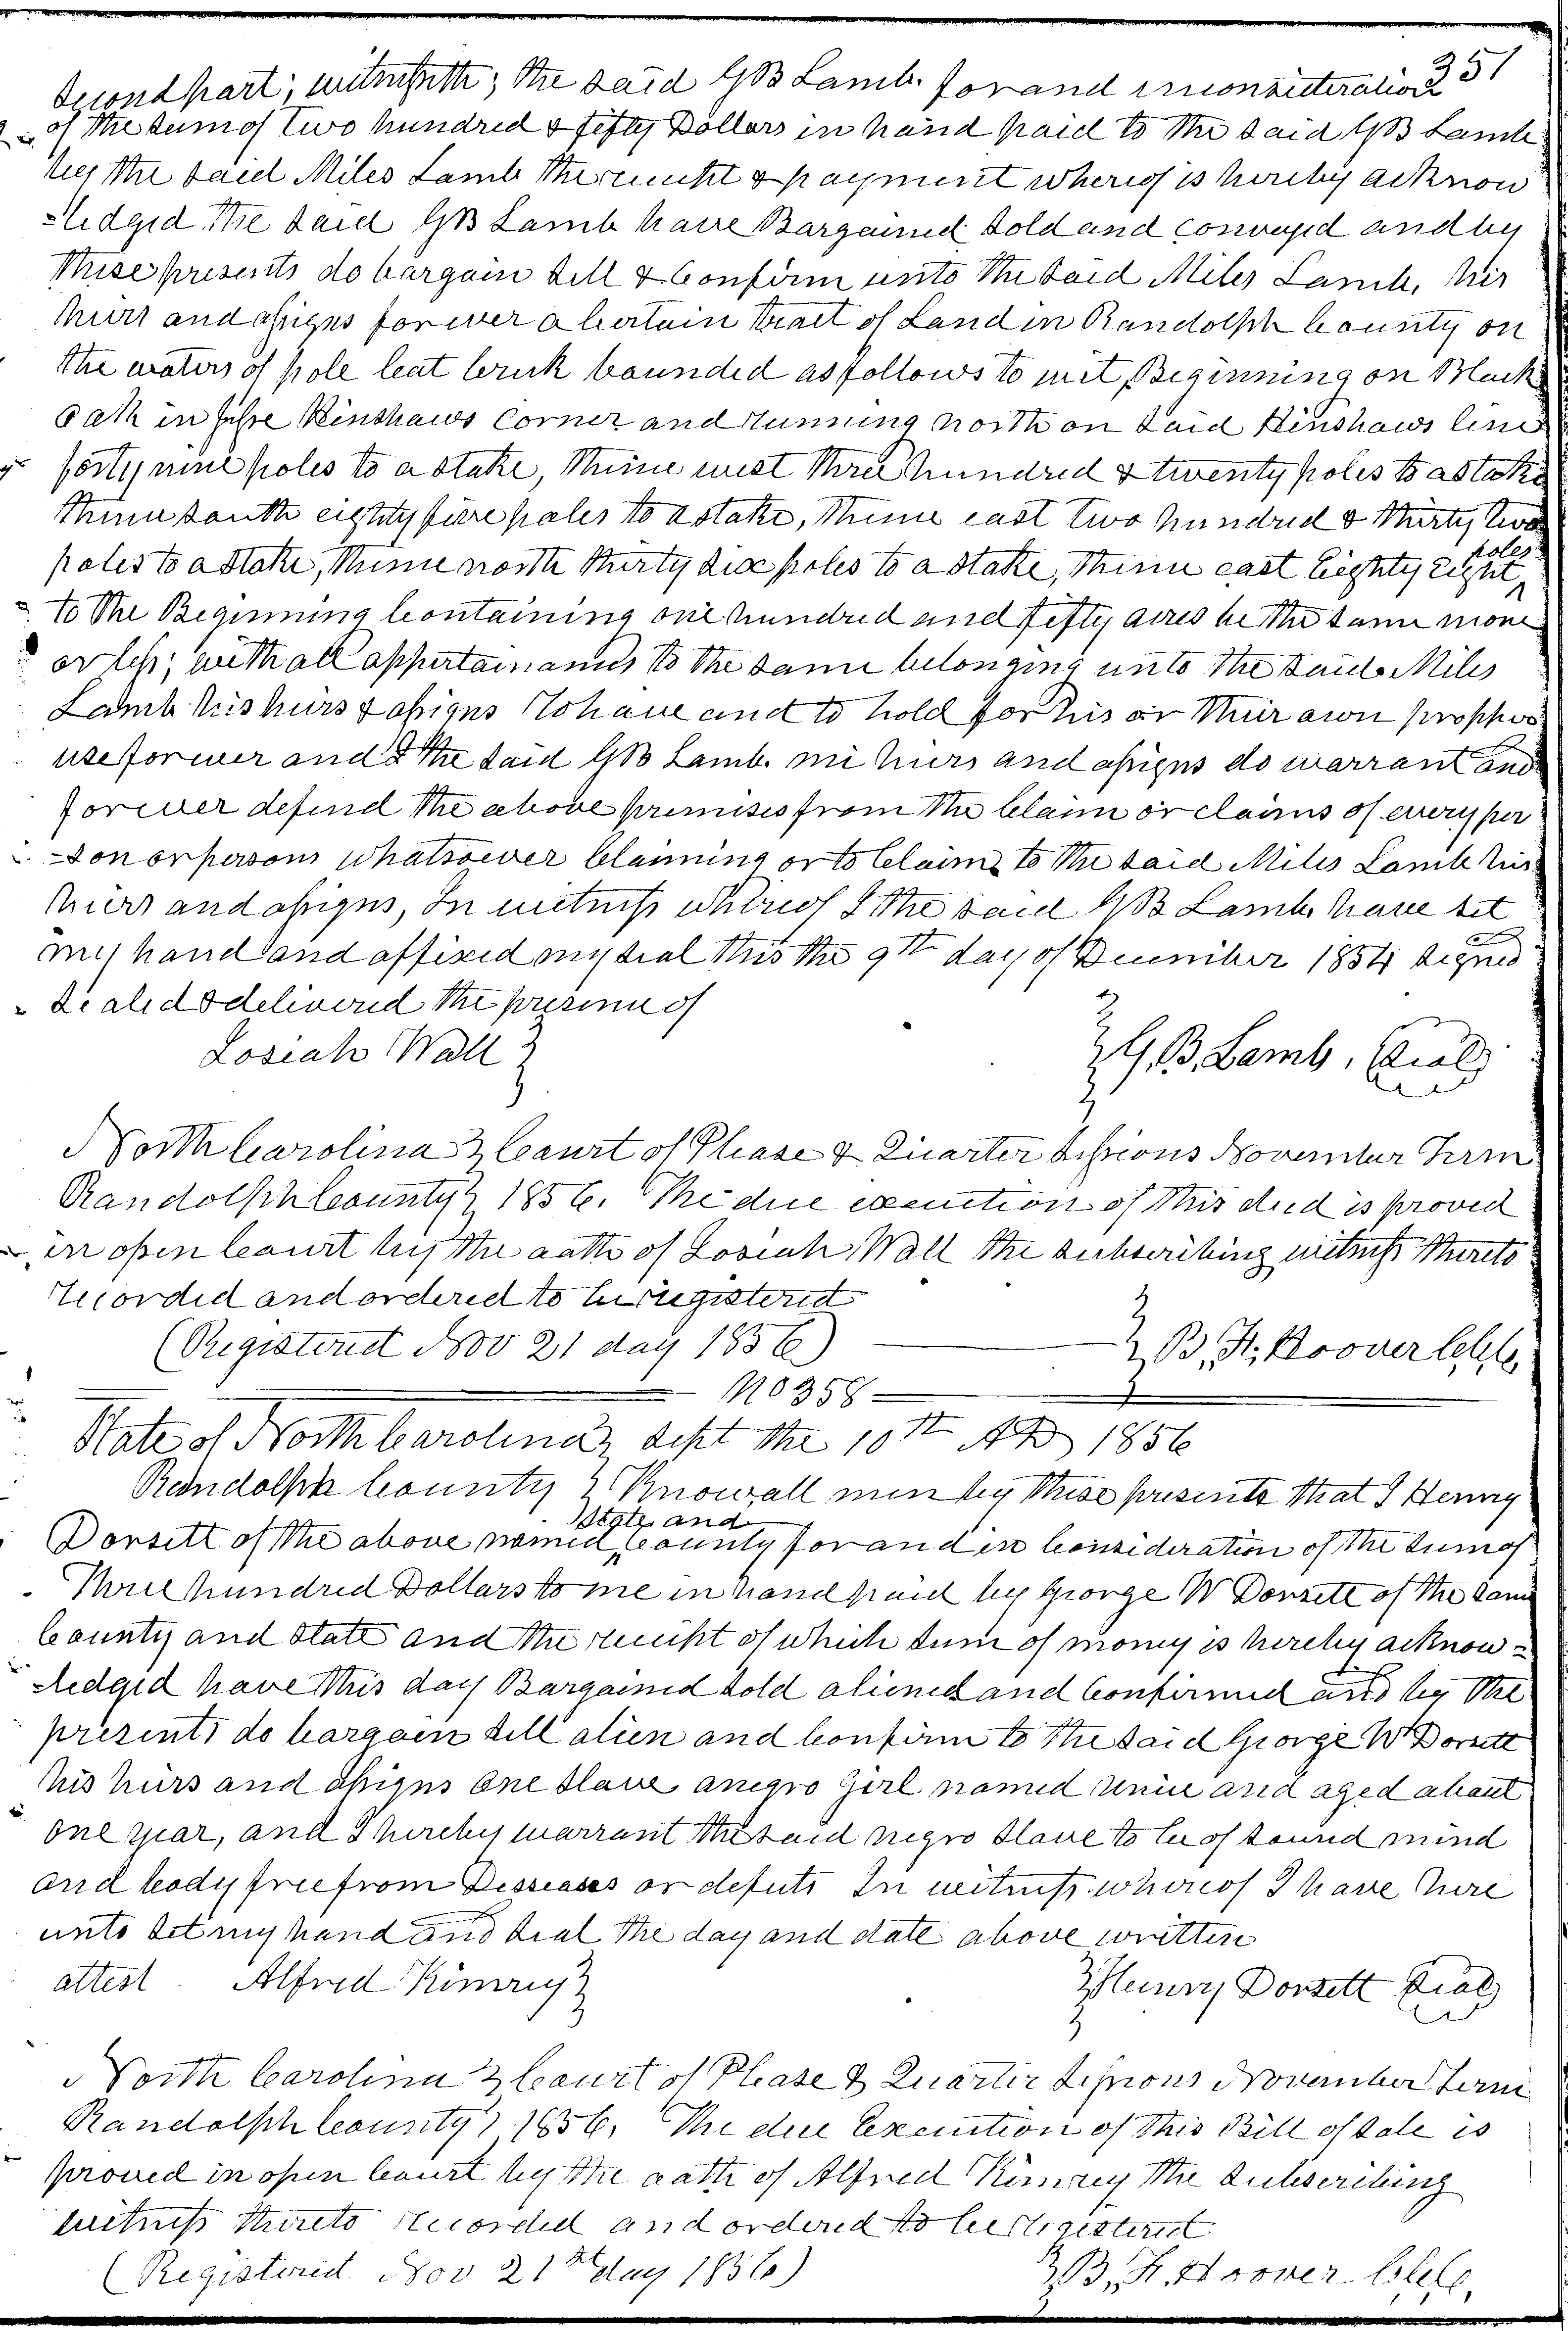 351
Second part; witnesseth; the said G B Lamb. for and in consideration
of the sum of two hundred & fifty Dollars in hand paid to the said G B Lamb
by the said Miles Lamb the receipt & payment whereof is hereby acknow
-ledged the said G B Lamb have Bargained sold and conveyed and by
these presents do bargain sell & Confirm unto the said Miles Lamb, his
heirs and assigns forever a Certain tract of Land in Randolph County on
the waters of pole Cat Creek bounded as follows to wit, Beginning on Black
oak in Jesse Hinshaws Corner and running north on said Hinshaws line
forty nine poles to a stake, Thence west three hundred & twenty poles to a stake
Thence south eighty five poles to a stake, Thence east two hundred & thirty two
poles to a stake, Thence north thirty six poles to a stake, Thence east Eighty eight poles
to the Beginning Containing one hundred and fifty acres be the same more
or less; with all appertainances to the same belonging unto the said Miles
Lamb his heirs & assigns To have and to hold for his or their own propper
use forever and I the said G B Lamb. mi heirs and assigns do warrant and
forever defend the above premises from the Claim or claims of every per
-son or persons whatsoever Claiming or to Claim to the said Miles Lamb his
heirs and assigns, In witness whereof I the said G B Lamb. have set
my hand and affixed my seal this the 9th day of December 1854 signed
sealed & delivered the presence of
Losiah Wall
G. B. Lamb, Seal
North Carolina Court of Please & Quarter sessions November Term
Randolph County 1856. The due execution of this deed is proved
in open Court by the oath of Losiah Wall the subscribing witness thereto
recorded and ordered to be registered
(Registered Nov 21 day 1856)
B. F. Hoover Clk,
No 358
State of North Carolina sept the 10th AD 1856
Randolph County Know all men by these presents that I Henry
Dorsett of the above named State and County for and in Consideration of the sum of
Three hundred Dollars to me in hand paid by George W Dorsett of the same
County and State and the receipt of which sum of money is hereby acknow=
-ledged have this day Bargained sold aliened and Confirmed and by the
presents do bargain sell alien and Confirm to the said George W Dorsett
his heirs and assigns one slave a negro Girl named and aged about
one year, and I hereby warrant the said negro slave to be of sound mind
and body free from Desseases or defects In witness whereof I have here
unto set my hand and seal the day and date above written
attest Alfred Kimrey
Henry Dorsett Seal
North Carolina Court of Please & Quarter sessions November Term
Randolph County 1856, The due Execution of this Bill of sale is
proved in open Court by the oath of Alfred Kimrey the subscribing
witness thereto recorded and ordered to be registered
(Registered Nov 21st day 1856)
B. F. Hoover Clk,